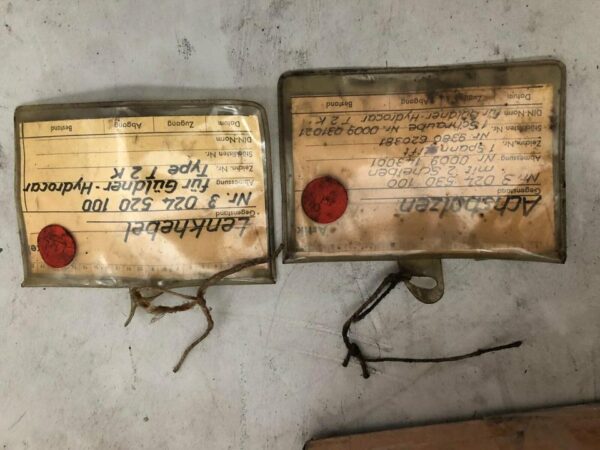 Gegenstand
Lenkhebel
Nr. 3 024 520 100
Abmessung für Güldner-Hydrocar
Zeichn. Nr. Type T 2 K
Stücklisten Nr.
DIN-Norm
Datum Zugang Abgang Bestand
Gegenstand
Achsbolzen
Nr. 3 024 530 100
mit 2 Scheiben
Abmessung Nr. 0009
Zeichn. Nr. 1 Spannstift
Stücklisten Nr. Nr. 9380 620381
1 Schraube Nr. 0009 031021
DIN-Norm für Güldner-Hydrocar T 2 K
Datum Zugang Abgang Bestand